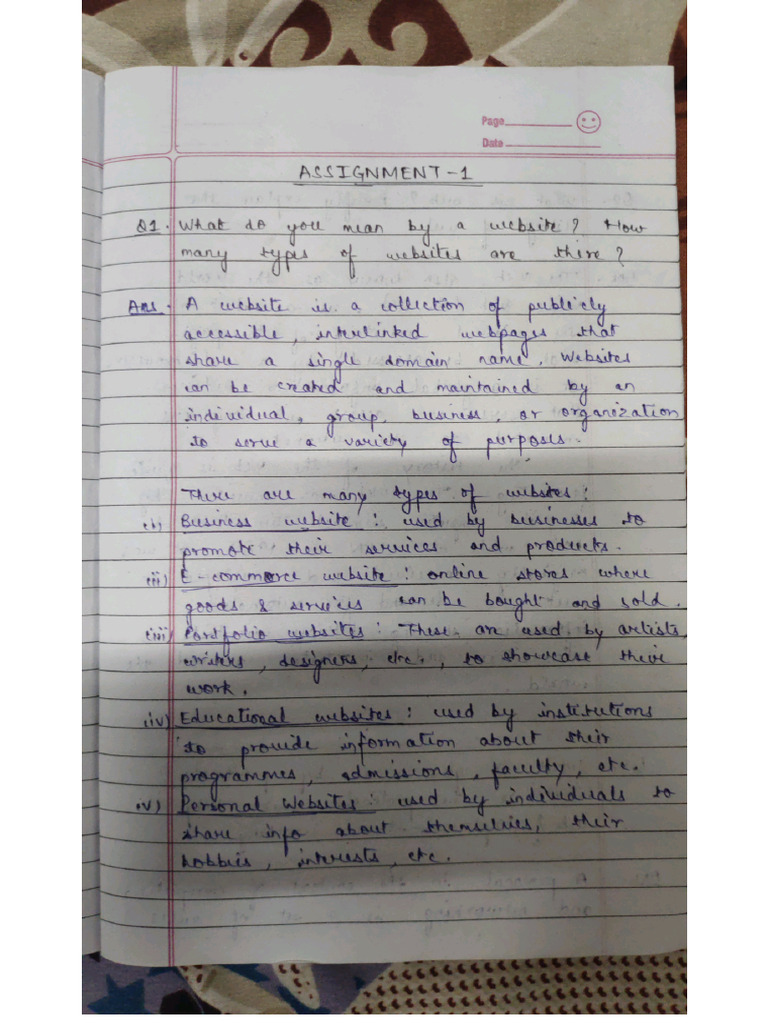 Page
Date
ASSIGNMENT-1
Q1. What do you mean by a website? How
many types of websites are there?
Ans. A website is a collection of publicly
accessible, interlinked webpages that
share a single domain name. Websites
can be created and maintained by an
individual, group, business, or organization
to serve a variety of purposes.
There are many types of websites:
(i) Business website: used by businesses to
promote their services and products.
(ii) E-commerce website: online stores where
goods & services can be bought and sold.
(iii) Portfolio websites: These are used by artists,
writers, designers, etc., to showcase their
work.
(iv) Educational websites: used by institutions
to provide information about their
programmes, admissions, faculty, etc.
(v) Personal Websites: used by individuals to
share info about themselves, their
hobbies, interests, etc.